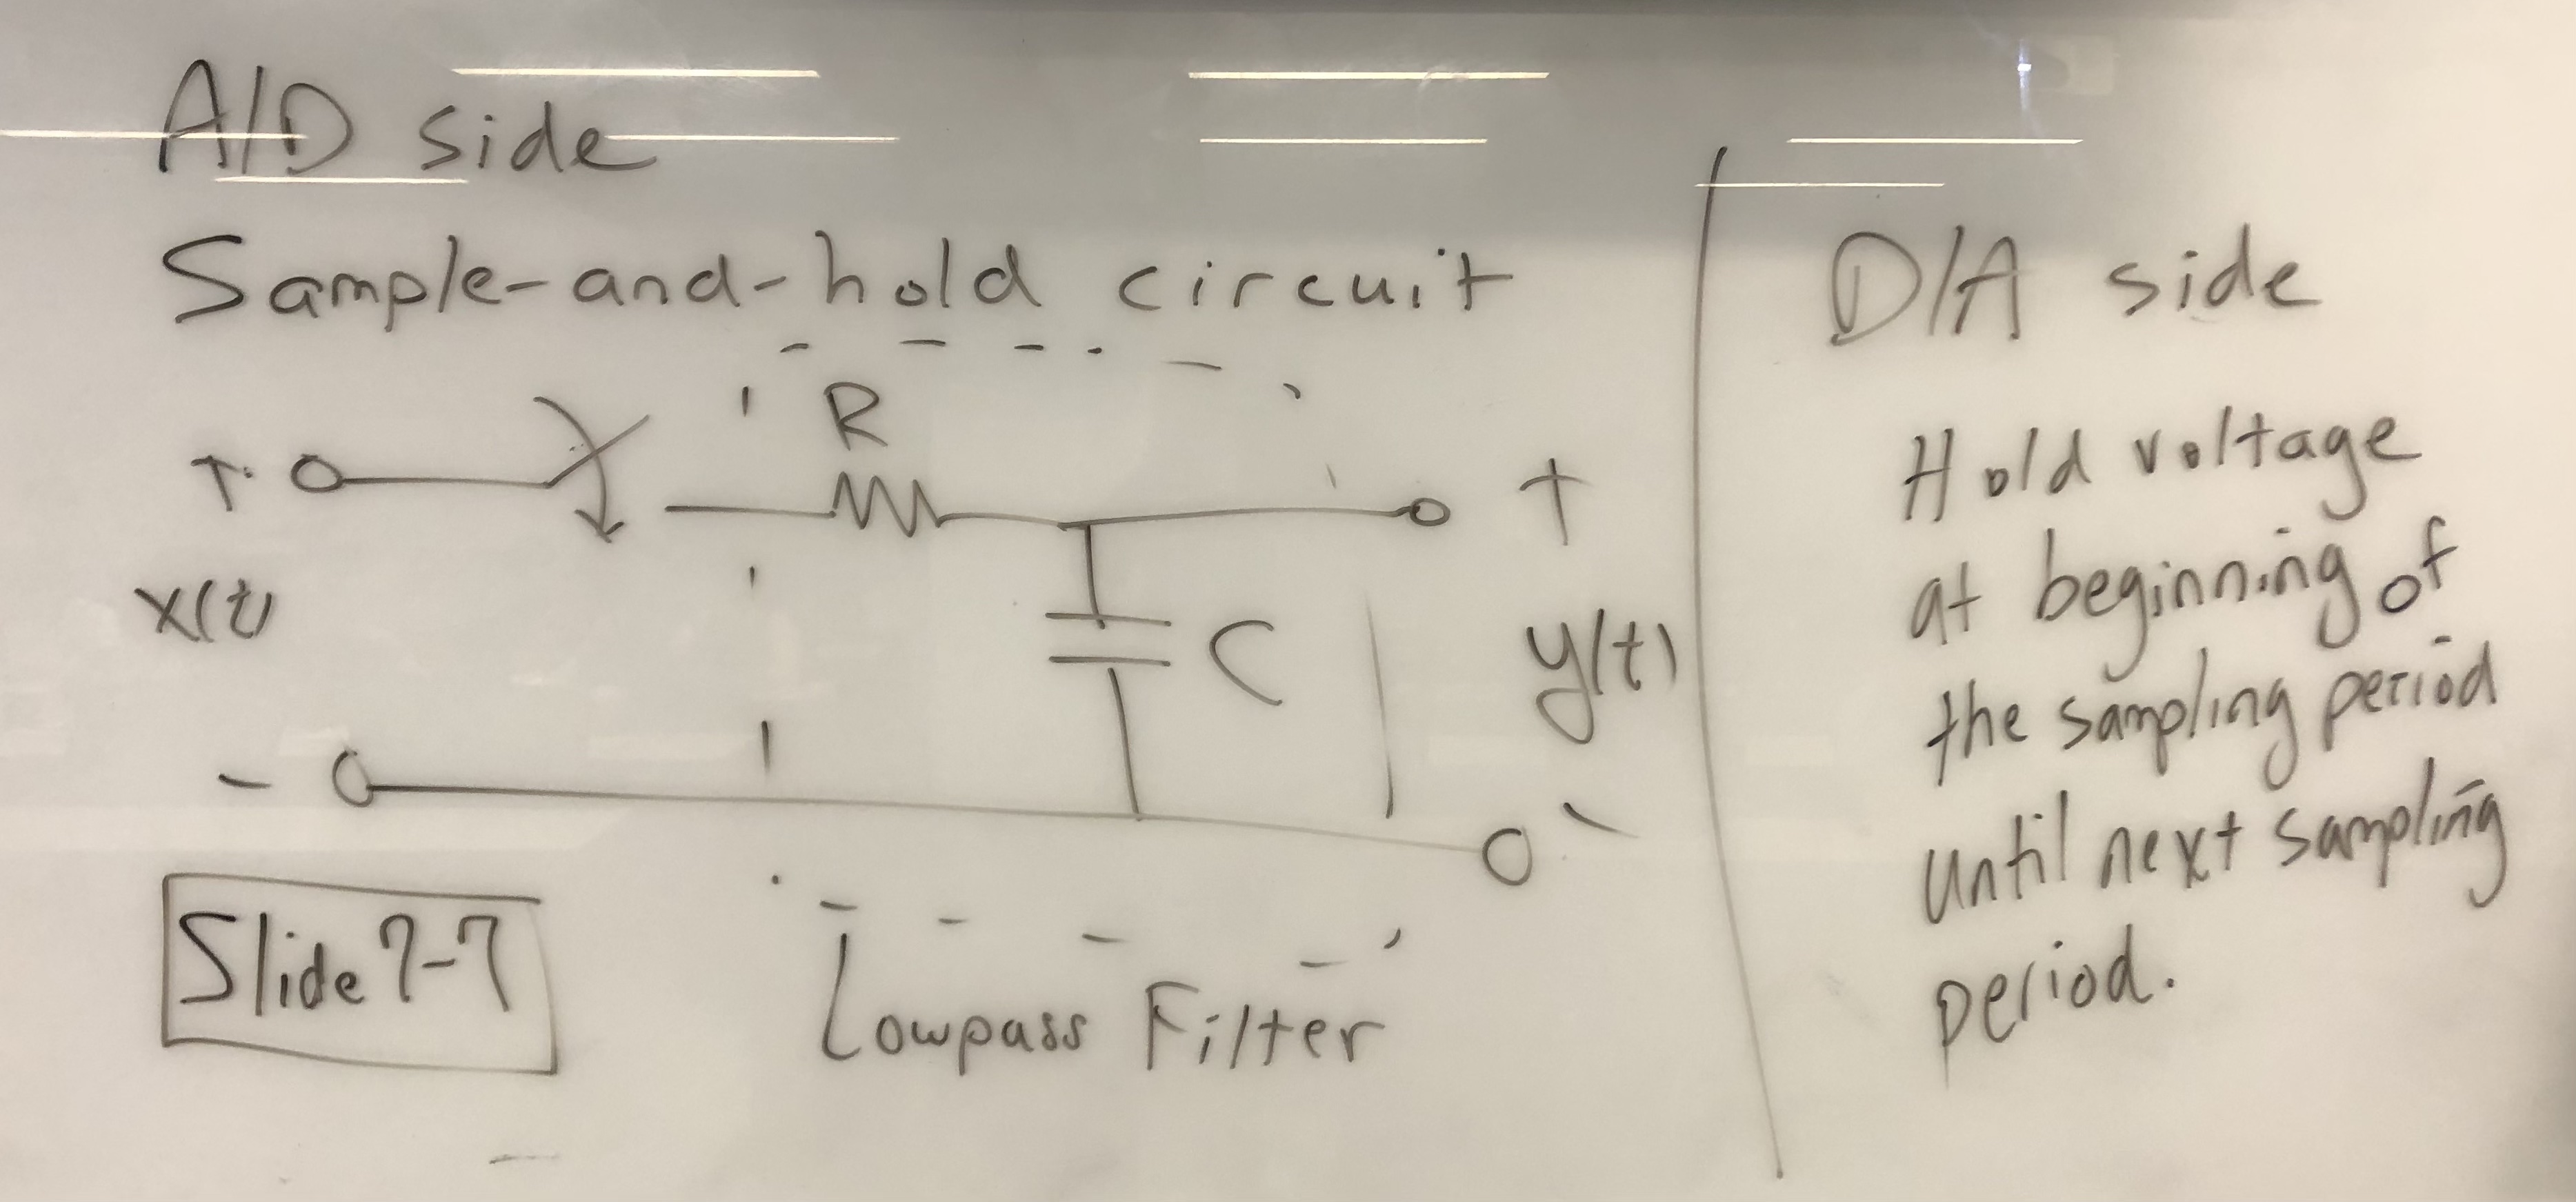 A/D side
Sample-and-hold circuit
R
+
+
x(t)
C
y(t)
-
-
Slide 7-7
Lowpass Filter
D/A side
Hold voltage
at beginning of
the sampling period
until next sampling
period.